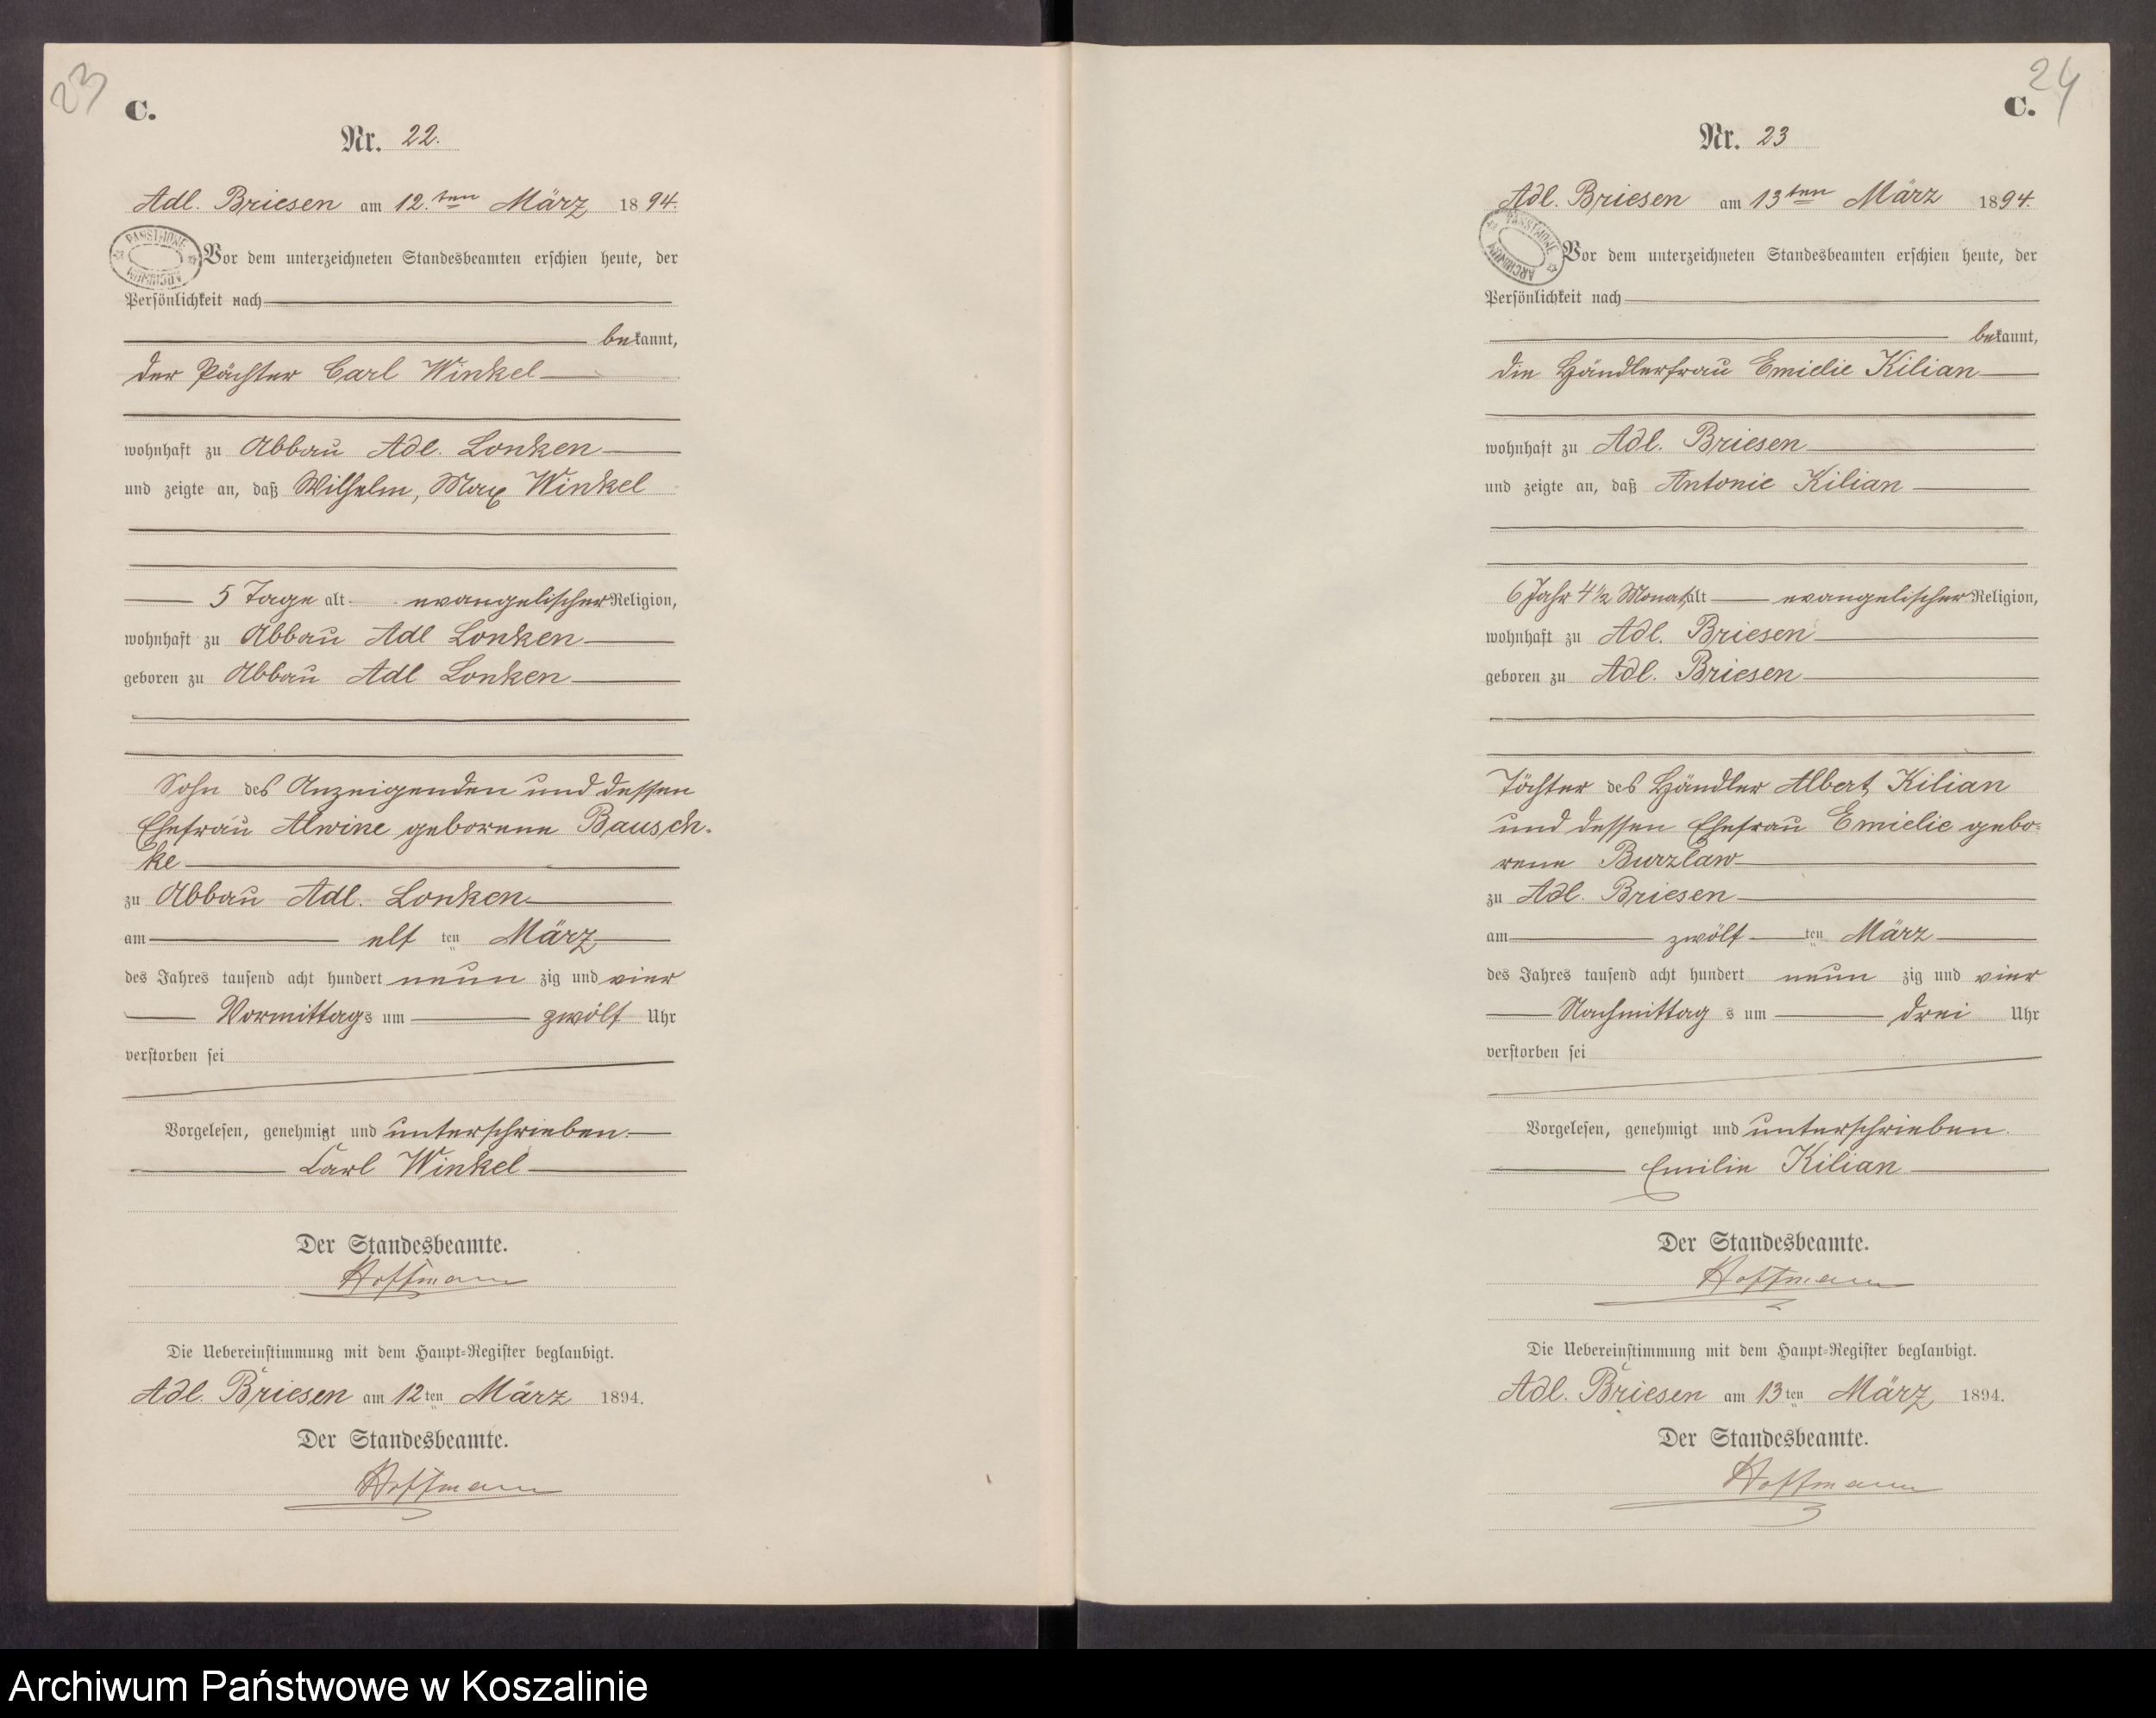 23
C.
Nr. 22.
Adl. Briesen am 12.ten März 1894.
PAŃSTWOWE ARCHIWUM
Vor dem unterzeichneten Standesbeamten erschien heute, der
Persönlichkeit nach
bekannt,
der Pächter Carl Winkel
wohnhaft zu Abbau Adl. Lonken
und zeigte an, daß Wilhelm, Max Winkel
5 Tage alt evangelischer Religion,
wohnhaft zu Abbau Adl Lonken
geboren zu Abbau Adl Lonken
Sohn des Anzeigenden und dessen
Ehefrau Alwine geborene Bausch-
ke
zu Abbau Adl. Lonken
am elf ten März
des Jahres tausend acht hundert neun zig und vier
Vormittags um zwölf Uhr
verstorben sei
Vorgelesen, genehmigt und unterschrieben.
Carl Winkel
Der Standesbeamte.
Hoffmann
Die Uebereinstimmung mit dem Haupt-Register beglaubigt.
Adl. Briesen am 12ten März 1894.
Der Standesbeamte.
Hoffmann
24
C.
Nr. 23
Adl. Briesen am 13ten März 1894.
PAŃSTWOWE ARCHIWUM
Vor dem unterzeichneten Standesbeamten erschien heute, der
Persönlichkeit nach
bekannt,
die Händlerfrau Emielie Kilian
wohnhaft zu Adl. Briesen
und zeigte an, daß Antonie Kilian
6 Jahr 4½ Monat alt evangelischer Religion,
wohnhaft zu Adl. Briesen
geboren zu Adl. Briesen
Tochter des Händler Albert Kilian
und dessen Ehefrau Emielie gebo-
rene Burzlaw
zu Adl. Briesen
am zwölf ten März
des Jahres tausend acht hundert neun zig und vier
Nachmittag s um drei Uhr
verstorben sei
Vorgelesen, genehmigt und unterschrieben.
Emilie Kilian
Der Standesbeamte.
Hoffmann
Die Uebereinstimmung mit dem Haupt-Register beglaubigt.
Adl. Briesen am 13ten März 1894.
Der Standesbeamte.
Hoffmann
Archiwum Państwowe w Koszalinie